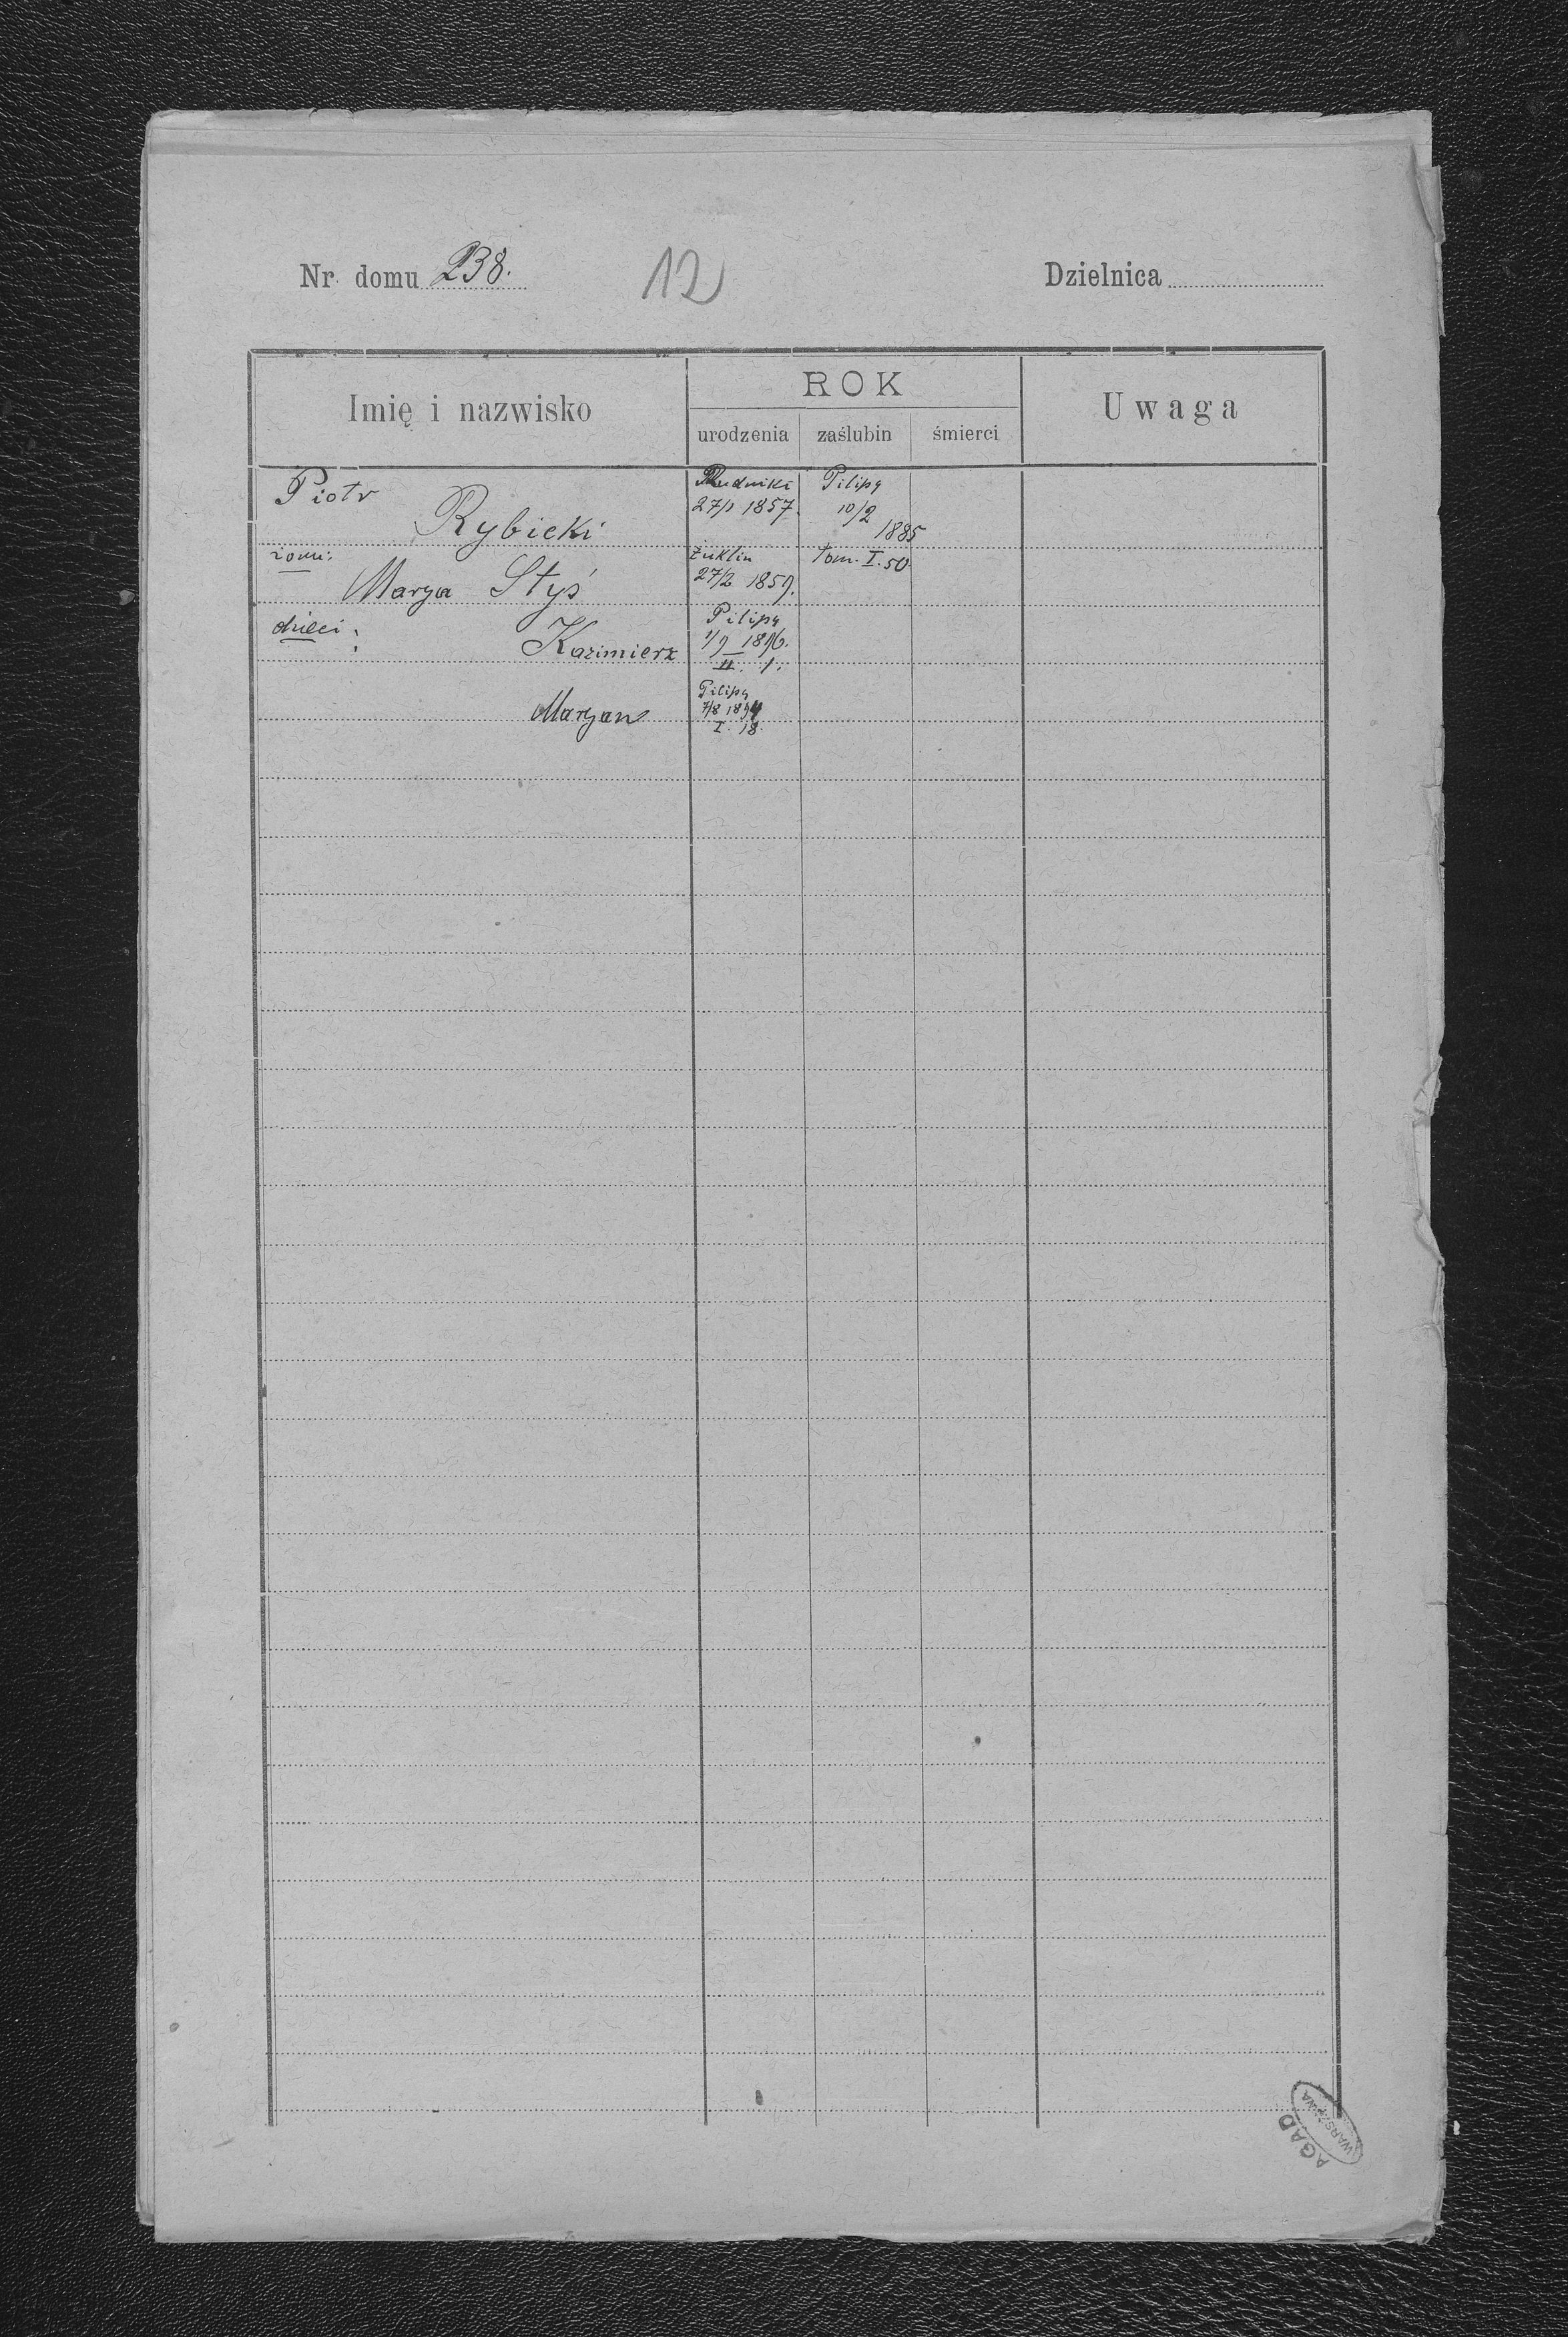 Nr. domu 238.
12
Dzielnica
Imię i nazwisko
ROK
urodzenia
zaślubin
śmierci
Uwaga
Piotr
Rybicki
Rudniki
27/1 1857.
Pilipy
10/2
1885
żona:
Marya Styś
Żuklin
27/2 1859.
tom. I. 50
dzieci:
Kazimierz
Pilipy
1/9 1896.
II. 1.
Maryan
Pilipy
7/8 1894
I. 18.
AGAD
WARSZAWA